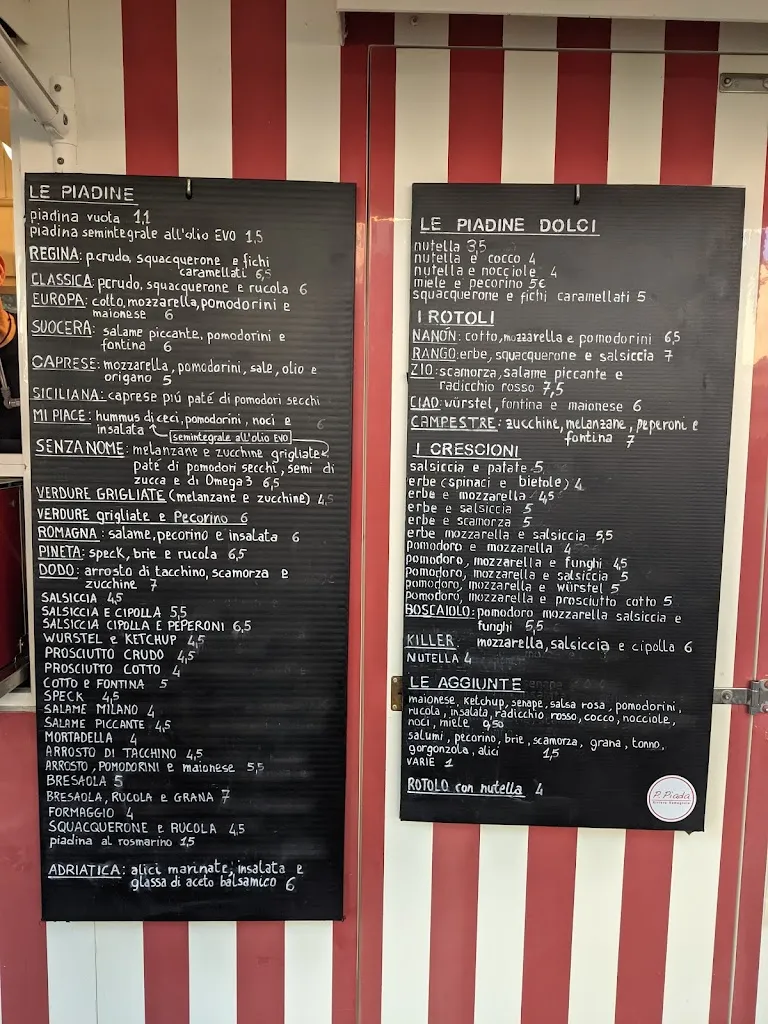 LE PIADINE
piadina vuota 1,1
piadina semintegrale all'olio EVO 1,5
REGINA: p.crudo, squacquerone e fichi
caramellati 6,5
CLASSICA: p.crudo, squacquerone e rucola 6
EUROPA: cotto, mozzarella, pomodorini e
maionese 6
SUOCERA: salame piccante, pomodorini e
fontina 6
CAPRESE: mozzarella, pomodorini, sale, olio e
origano 5
SICILIANA: caprese piú paté di pomodori secchi
MI PIACE: hummus di ceci, pomodorini, noci e 6
insalata
semintegrale all'olio EVO
SENZA NOME: melanzane e zucchine grigliate
paté di pomodori secchi, semi di
zucca e di Omega3 6,5
VERDURE GRIGLIATE (melanzane e zucchine) 4,5
VERDURE grigliate e Pecorino 6
ROMAGNA: salame, pecorino e insalata 6
PINETA: speck, brie e rucola 6,5
DODO: arrosto di tacchino, scamorza e
zucchine 7
SALSICCIA 4,5
SALSICCIA E CIPOLLA 5,5
SALSICCIA CIPOLLA E PEPERONI 6,5
WURSTEL e KETCHUP 4,5
PROSCIUTTO CRUDO 4,5
PROSCIUTTO COTTO 4
COTTO e FONTINA 5
SPECK 4,5
SALAME MILANO 4
SALAME PICCANTE 4,5
MORTADELLA 4
ARROSTO DI TACCHINO 4,5
ARROSTO, POMODORINI e maionese 5,5
BRESAOLA 5
BRESAOLA, RUCOLA e GRANA 7
FORMAGGIO 4
SQUACQUERONE e RUCOLA 4,5
piadina al rosmarino 1,5
ADRIATICA: alici marinate, insalata e
glassa di aceto balsamico 6
LE PIADINE DOLCI
nutella 3,5
nutella e cocco 4
nutella e nocciole 4
miele e pecorino 5€
squacquerone e fichi caramellati 5
I ROTOLI
NANON: cotto, mozzarella e pomodorini 6,5
RANGO: erbe, squacquerone e salsiccia 7
ZIO: scamorza, salame piccante e
radicchio rosso 7,5
CIAO: würstel, fontina e maionese 6
CAMPESTRE: zucchine, melanzane, peperoni e
fontina 7
I CRESCIONI
salsiccia e patate 5
erbe (spinaci e bietole) 4
erbe e mozzarella 4,5
erbe e salsiccia 5
erbe e scamorza 5
erbe mozzarella e salsiccia 5,5
pomodoro e mozzarella 4
pomodoro, mozzarella e funghi 4,5
pomodoro, mozzarella e salsiccia 5
pomodoro, mozzarella e würstel 5
pomodoro, mozzarella e prosciutto cotto 5
BOSCAIOLO: pomodoro mozzarella salsiccia e
funghi 5,5
KILLER: mozzarella, salsiccia e cipolla 6
NUTELLA 4
LE AGGIUNTE
maionese, ketchup, senape, salsa rosa, pomodorini,
rucola, insalata, radicchio rosso, cocco, nocciole,
noci, miele 0,50
salumi, pecorino, brie, scamorza, grana, tonno,
gorgonzola, alici 1,5
VARIE 1
ROTOLO con nutella 4
P. Piada